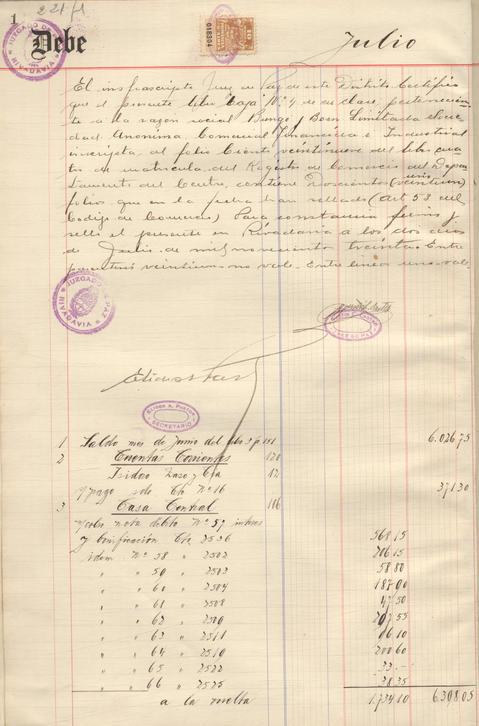 1
221 fs
Debe
Julio
JUZGADO DE PAZ RIVADAVIA
018304
El infrascripto Juez de Paz de este Distrito Certifica
que el presente libro Caja Nº 4 de su clase, pertenecien-
te a la razón social Bunge y Born Limitada Socie-
dad Anónima Comercial Financiera e Industrial
inscripta al folio Ciento veintinueve del libro cua-
tro de matricula del Registro de Comercio del Depar-
tamento del Centro, contiene Doscientos (veintiun)
folios que en la fecha han sellado (Art 53 del
Codigo de Comercio) Para constancia firmo y
sello el presente en Rivadavia a los dos dias
de Julio de mil novecientos treinta. Entre
parentesis veintiuno no vale. Entre lineas uno vale.
JUZGADO DE PAZ
RIVADAVIA
JUEZ DE PAZ
SECRETARIO
1 Saldo mes de Junio del libro 3 p 6.026.75
2 Cuentas Corrientes 120
Isidro y Cia 12
s/pago s/c Ch Nº 16 371.30
3 Casa Central 116
s/ nota debito Nº 57 interes
y bonificación Cte 2536 568.15
idem Nº 58 " 2502 206.15
" " 59 " 2503 58.80
" " 60 " 2504 187.00
" " 61 " 2508 47.50
" " 62 " 2509 207.55
" " 63 " 2511
" " 64 " 2519 200.60
" " 65 " 2522 33.-
" " 66 " 2525
a la vuelta 1.734.10 6.398.05